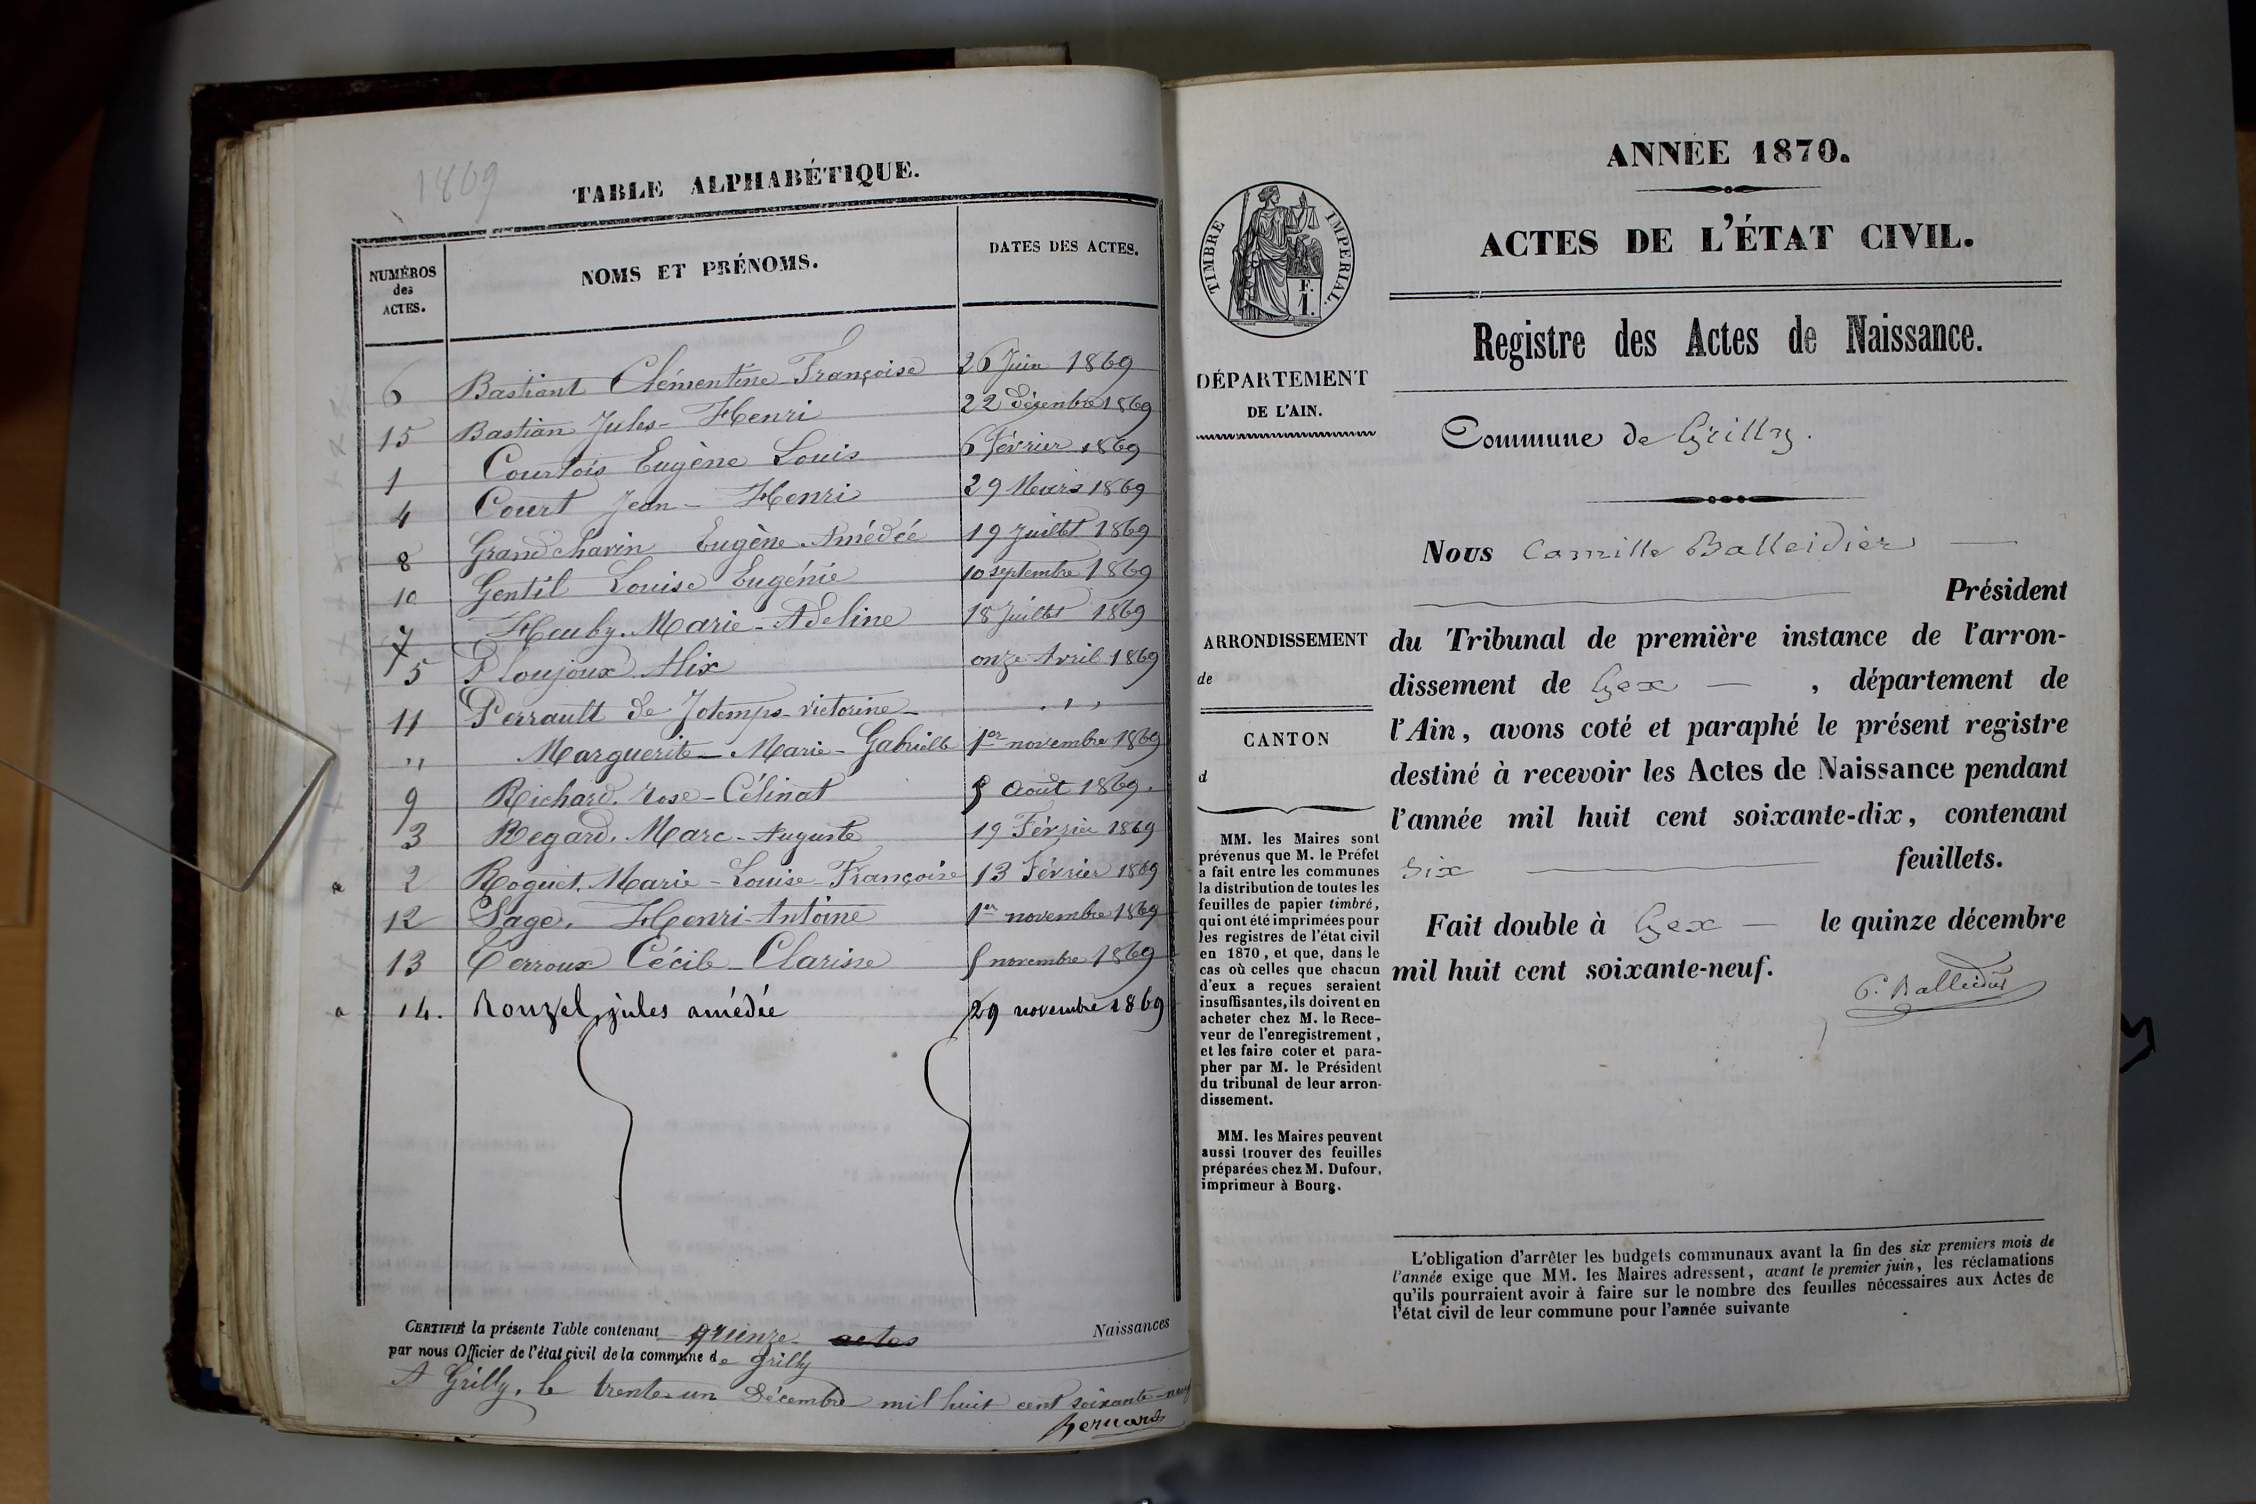 1869
TABLE ALPHABÉTIQUE.
NUMÉROS des ACTES. NOMS ET PRÉNOMS. DATES DES ACTES.
6 Bastiant Clémentine Françoise 26 Juin 1869
15 Bastian Jules-Henri 22 Décembre 1869
1 Courtois Eugène Louis 6 Février 1869
4 Court Jean-Henri 29 Mars 1869
8 Grandchavin Eugène Amédée 19 Juillet 1869
10 Gentil Louise Eugénie 10 septembre 1869
7 Heuby. Marie-Adeline 18 Juillet 1869
5 Ploujoux Alix onze Avril 1869
11 Perrault de Jotemps-victorine-
" Marguerite-Marie-Gabrielle 1er novembre 1869
9 Richard. rose-Célinat 5 Août 1869.
3 Regard. Marc-Auguste 19 Février 1869
2 Roguet. Marie-Louise-Françoise 13 Février 1869
12 Sage. Henri-Antoine 1er novembre 1869
13 Terroux Cécile-Clarisse 5 novembre 1869
14. Rouzel, jules amédée 29 novembre 1869
CERTIFIÉ la présente Table contenant quinze actes Naissances
par nous Officier de l'état civil de la commune de Grilly
A Grilly, le trente-un Décembre mil huit cent soixante-neuf
Bernard
ANNÉE 1870.
ACTES DE L'ÉTAT CIVIL.
TIMBRE IMPÉRIAL.
F.
1.
Registre des Actes de Naissance.
DÉPARTEMENT
DE L'AIN.
Commune de Grilly.
Nous Camille Balleidier
Président
ARRONDISSEMENT
de
CANTON
d
du Tribunal de première instance de l'arron-
dissement de Gex, département de
l'Ain, avons coté et paraphé le présent registre
destiné à recevoir les Actes de Naissance pendant
l'année mil huit cent soixante-dix, contenant
six feuillets.
Fait double à Gex le quinze décembre
mil huit cent soixante-neuf.
C. Balleidier
MM. les Maires sont
prévenus que M. le Préfet
a fait entre les communes
la distribution de toutes les
feuilles de papier timbré,
qui ont été imprimées pour
les registres de l'état civil
en 1870, et que, dans le
cas où celles que chacun
d'eux a reçues seraient
insuffisantes, ils doivent en
acheter chez M. le Rece-
veur de l'enregistrement,
et les faire coter et para-
pher par M. le Président
du tribunal de leur arron-
dissement.
MM. les Maires peuvent
aussi trouver des feuilles
préparées chez M. Dufour,
imprimeur à Bourg.
L'obligation d'arrêter les budgets communaux avant la fin des six premiers mois de
l'année exige que MM. les Maires adressent, avant le premier juin, les réclamations
qu'ils pourraient avoir à faire sur le nombre des feuilles nécessaires aux Actes de
l'état civil de leur commune pour l'année suivante